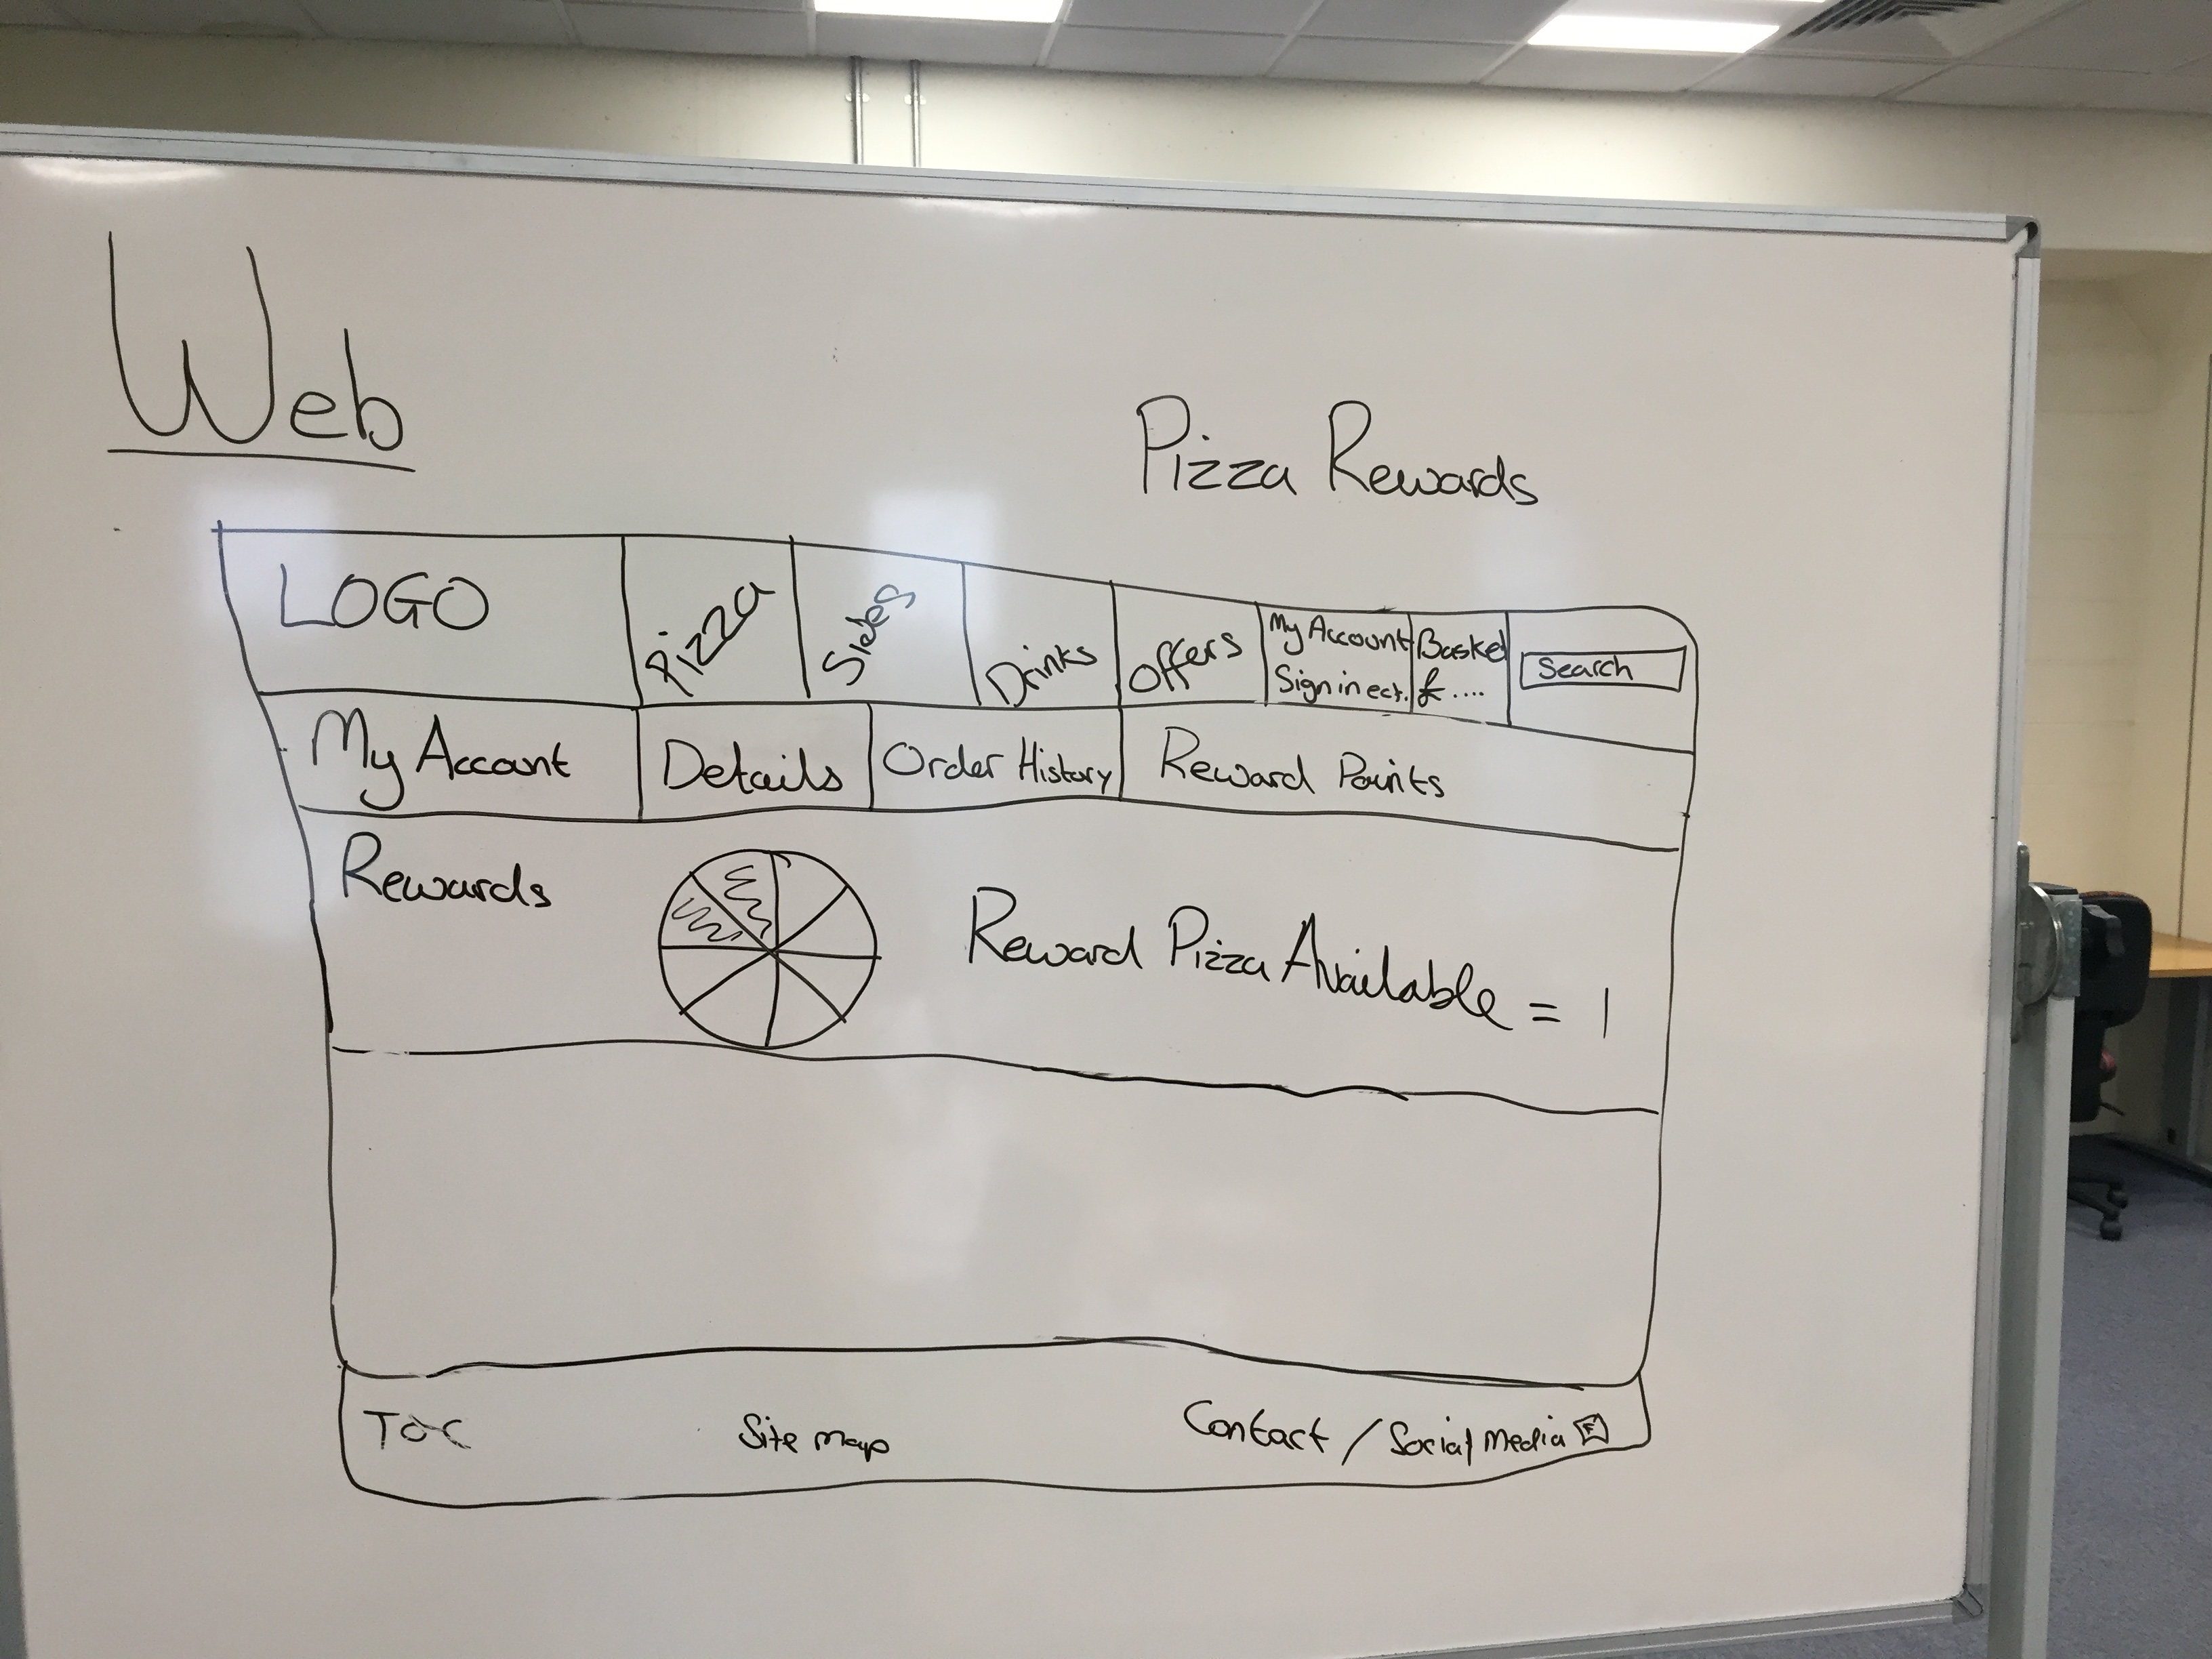 Web
Pizza Rewards
LOGO
Pizza
Sides
Drinks
Offers
My Account
Sign in ect.
Basket
£ ....
Search
My Account
Details
Order History
Reward Points
Rewards
Reward Pizza Available = 1
Site Map
Contact / Social Media F